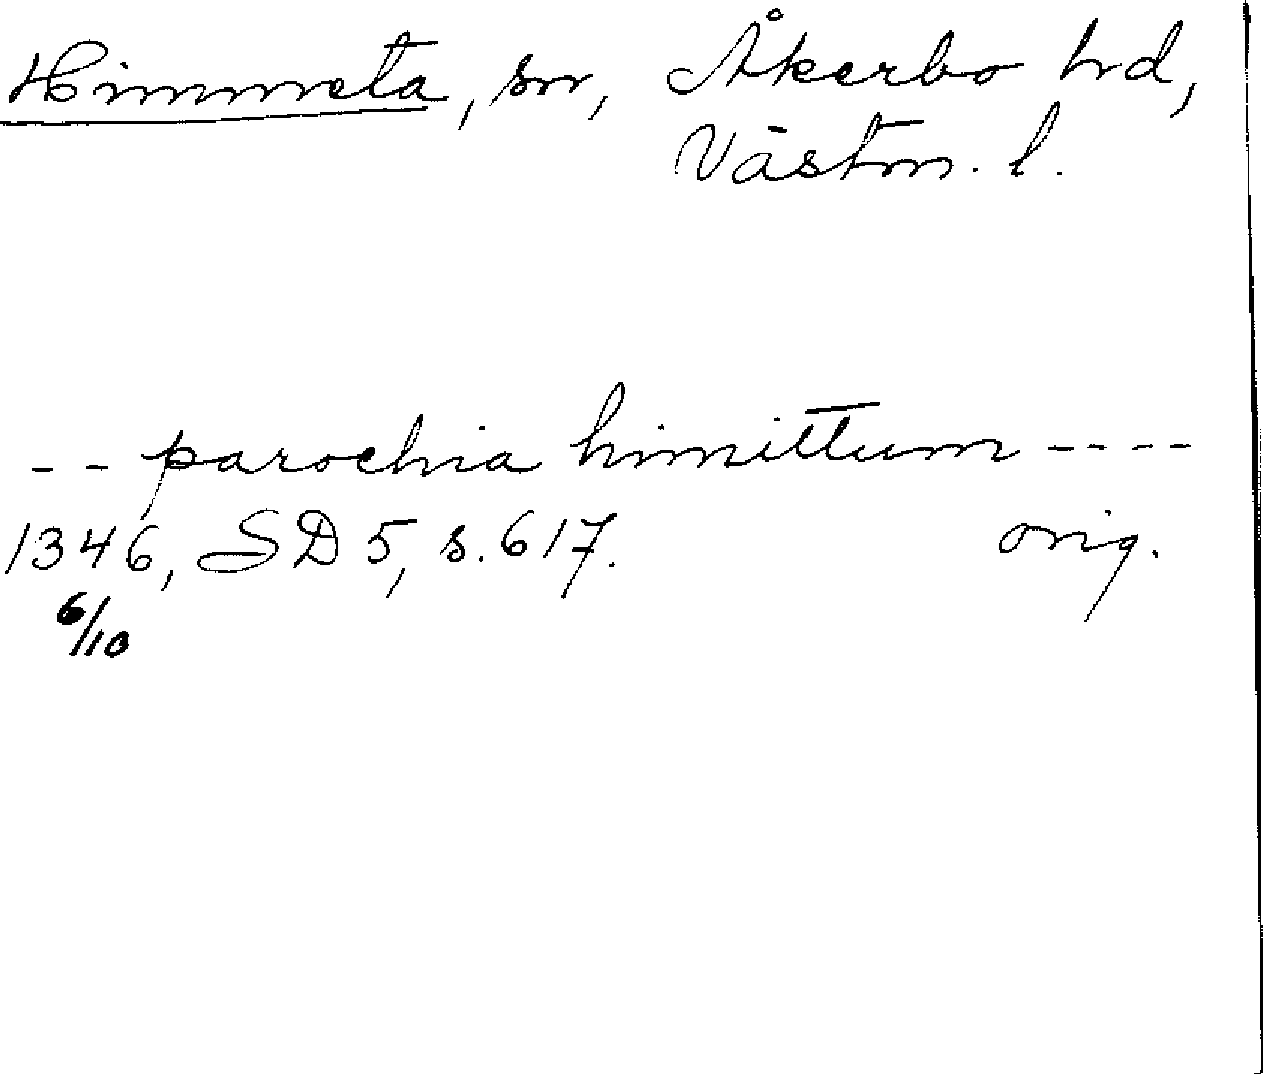 Himmeta, sn, Åkerbo hd,
Västm. l.
-- parochia himittum ----
1346, SD 5, s. 617. orig.
6/10